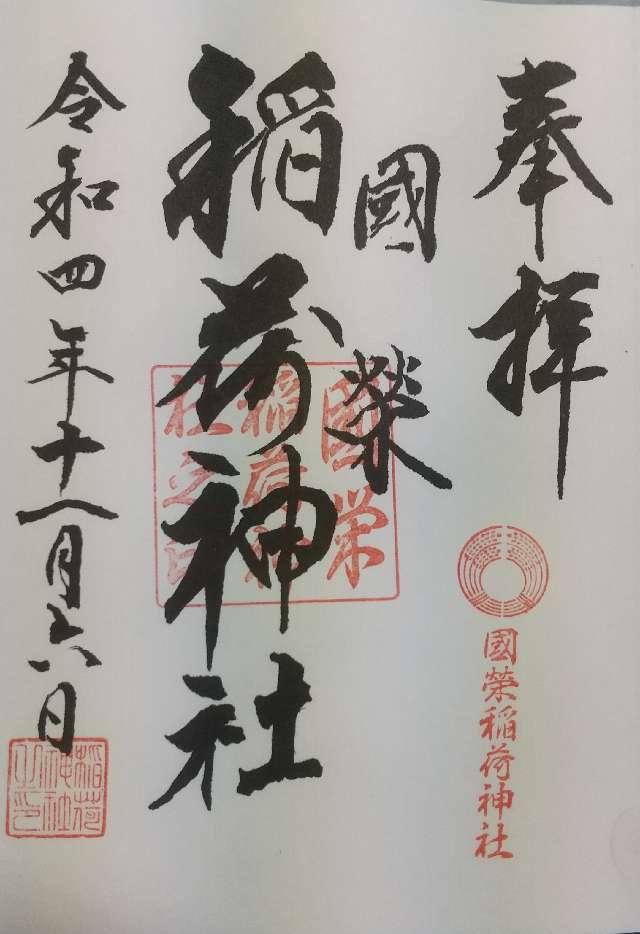 奉拝
國榮稲荷神社
國榮
稲荷神社
國栄
稲荷神
社之印
令和四年十一月六日
稲荷
神社
之印